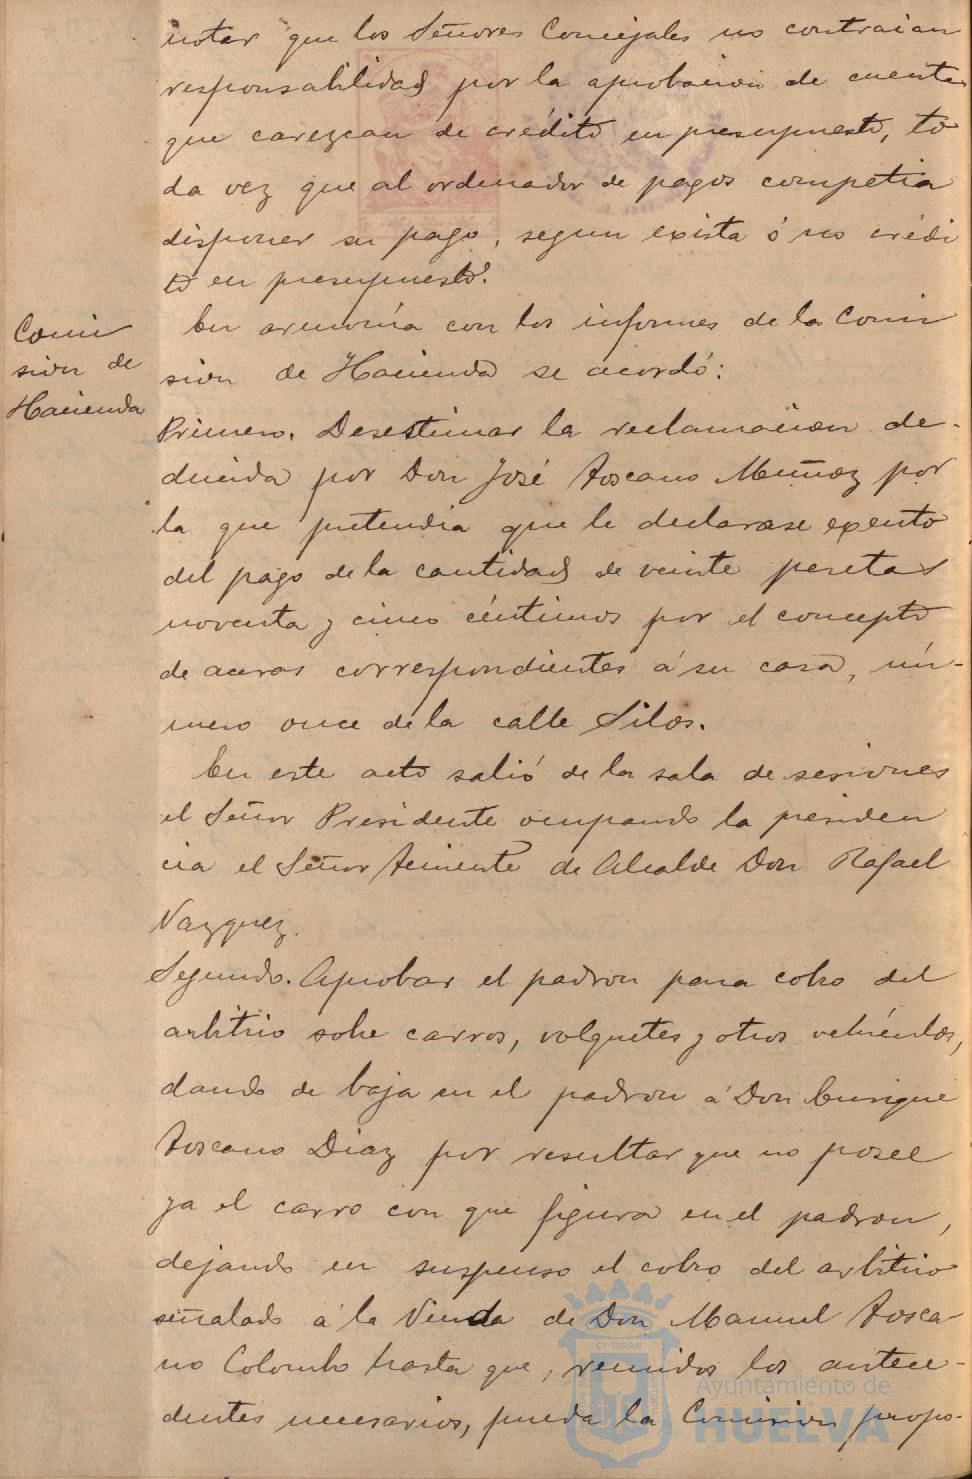 notar que los Señores Concejales no contraian
responsabilidad por la aprobacion de cuentas
que carezcan de crédito en presupuesto, to
da vez que al ordenador de pagos competia
disponer su pago, segun exista ó no crédi
to en presupuesto.
Comi
sion de
Hacienda
En armonía con los informes de la Comi
sion de Hacienda se acordó:
Primero. Desestimar la reclamacion de-
ducida por Don José Toscano Muñoz por
la que pretendia que le declarase exento
del pago de la cantidad de veinte pesetas
noventa y cinco céntimos por el concepto
de aceras correspondientes á su casa, nú-
mero once de la calle Silos.
En este acto salió de la sala de sesiones
el Señor Presidente ocupando la presiden
cia el Señor Teniente de Alcalde Don Rafael
Vazquez.
Segundo. Aprobar el padron para cobro del
arbitrio sobre carros, volquetes y otros vehículos,
dando de baja en el padron á Don Enrique
Toscano Diaz por resultar que no posee
ya el carro con que figura en el padron,
dejando en suspenso el cobro del arbitrio
señalado á la Viuda de Don Manuel Tosca
no Colombo hasta que, reunidos los antece-
dentes necesarios, pueda la Comision propo-
Ayuntamiento de
HUELVA